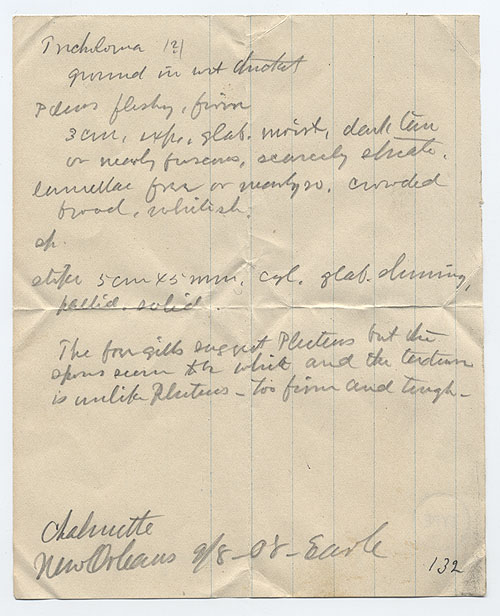 Tricholoma (?)
ground in wet thicket
Pileus fleshy, firm
3 cm, exp, glab. moist, dark tan
or nearly fuscous, scarcely striate.
Lamellae free or nearly so. crowded
broad, whitish.
sp.
stipe 5 cm x 5 mm, cyl. glab. shining,
pallid. solid.
The free gills suggest Pluteus but the
spores seem to be white and the texture
is unlike Pluteus - too firm and tough -
Chalmette
New Orleans 9/8-08 - Earle
132